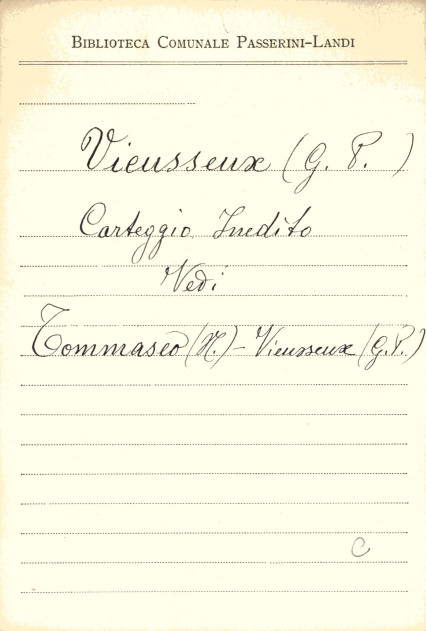 BIBLIOTECA COMUNALE PASSERINI-LANDI
Vieusseux (G. P.)
Carteggio Inedito
Vedi
Tommaseo (N.) - Vieusseux (G.P.)
C